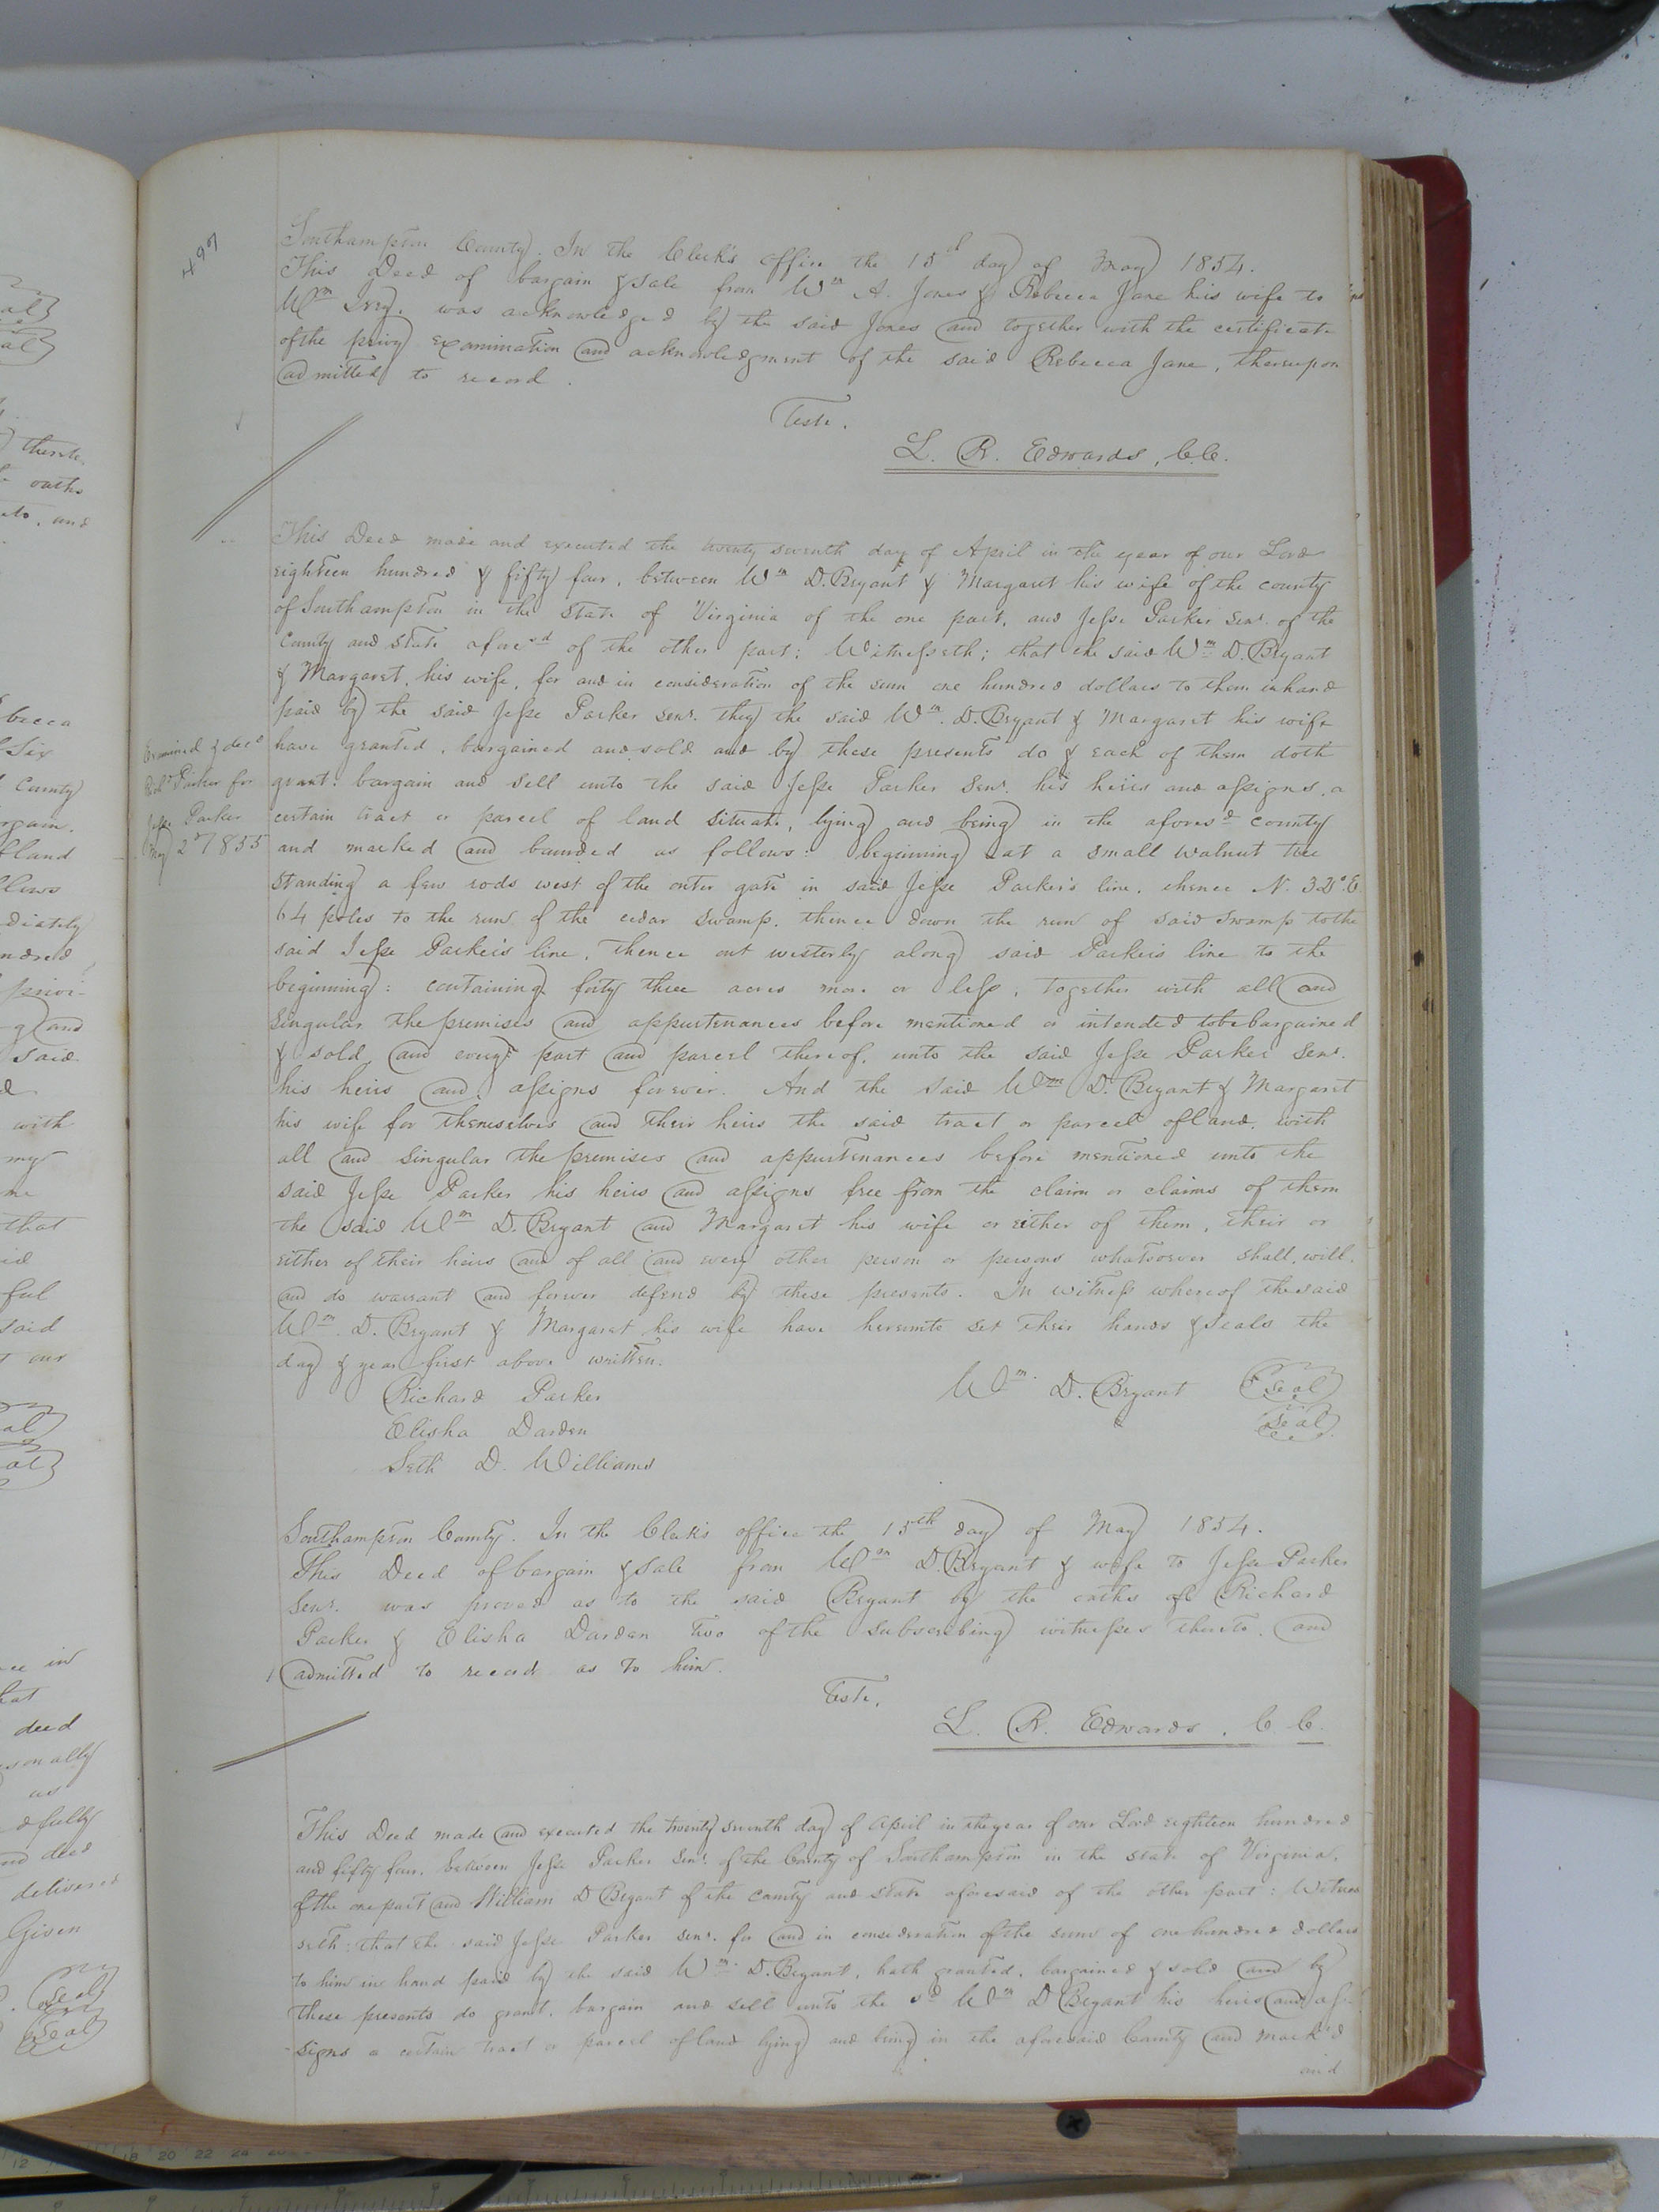 497
Southampton County. In the Clerk's office the 15th day of May 1854.
This Deed of bargain & sale from Wm A. Jones & Rebecca Jane his wife to
Wm was acknowledged by the said Jones and together with the certificate
of the privy examination and acknowledgment of the said Rebecca Jane, thereupon
admitted to record.
Teste.
L. R. Edwards, C.C.
This Deed made and executed the twenty seventh day of April in the year of our Lord
eighteen hundred & fifty four, between Wm D. Bryant & Margaret his wife of the county
of Southampton in the State of Virginia of the one part, and Jesse Parker Senr. of the
County and State aforesd of the other part: Witnesseth; that the said Wm D. Bryant
& Margaret, his wife, for and in consideration of the sum one hundred dollars to them in hand
paid by the said Jesse Parker senr. they the said Wm. D. Bryant & Margaret his wife
have granted, bargained and sold and by these presents do & each of them doth
grant, bargain and sell unto the said Jesse Parker Senr. his heirs and assigns, a
certain tract or parcel of land situate, lying and being in the aforesd county
and marked and bounded as follows: beginning at a small walnut tree
standing a few rods west of the outer gate in said Jesse Parker's line, thence N. 32° E.
64 poles to the run of the cedar swamp, thence down the run of said swamp to the
said Jesse Parker's line, thence out westerly along said Parker's line to the
beginning: containing forty three acres more or less, together with all and
singular the premises and appurtenances before mentioned or intended to be bargained
& sold, and every part and parcel thereof, unto the said Jesse Parker Senr.
his heirs and assigns forever. And the said Wm D. Bryant & Margaret
his wife for themselves and their heirs the said tract or parcel of land, with
all and singular the premises and appurtenances before mentioned unto the
said Jesse Parker his heirs and assigns free from the claim or claims of them
the said Wm D. Bryant and Margaret his wife or either of them, their or
either of their heirs and of all and every other person or persons whatsoever shall, will,
and do warrant and forever defend by these presents. In witness whereof the said
Wm. D. Bryant & Margaret his wife have hereunto set their hands & seals the
day & year first above written.
Richard Parker
Wm. D. Bryant Seal
Elisha Darden
Seal
Seth D. Williams
Examined & decd
Parker for
Jesse Parker
May 2d 1855
Southampton County. In the Clerk's office the 15th day of May 1854.
This Deed of bargain & sale from Wm D. Bryant & wife to Jesse Parker
Senr. was proved as to the said Bryant by the oaths of Richard
Parker & Elisha Darden two of the subscribing witnesses thereto, and
admitted to record as to him.
Teste,
L. R. Edwards, C. C.
This Deed made and executed the twenty seventh day of April in the year of our Lord eighteen hundred
and fifty four, between Jesse Parker Senr. of the County of Southampton in the state of Virginia,
of the one part and William D Bryant of the county and state aforesaid of the other part: Witnes
seth: that the said Jesse Parker senr. for and in consideration of the sum of one hundred dollars
to him in hand paid by the said Wm. D. Bryant, hath granted, bargained & sold and by
these presents do grant, bargain and sell unto the sd Wm D Bryant his heirs and as-
signs a certain tract or parcel of land lying and being in the aforesaid County and mark'd
and